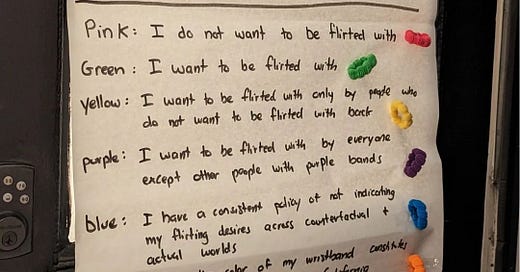 Pink: I do not want to be flirted with
Green: I want to be flirted with
Yellow: I want to be flirted with only by people who
do not want to be flirted with back
purple: I want to be flirted with by everyone
except other people with purple bands
blue: I have a consistent policy of not indicating
my flirting desires across counterfactual +
actual worlds
color of my wristband constitutes